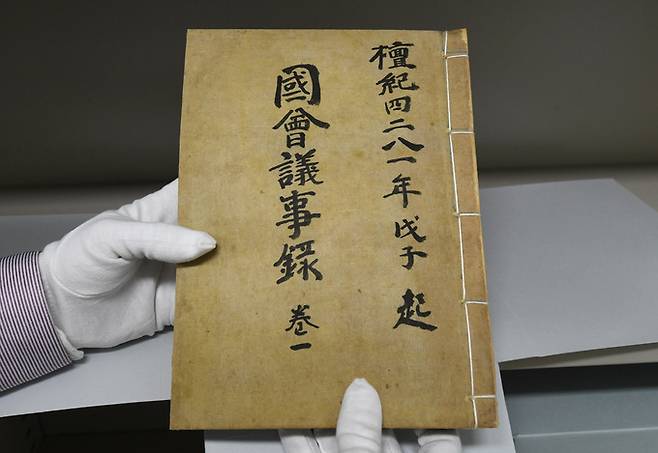 檀紀四二八一年戊子 起
國會議事錄 卷一